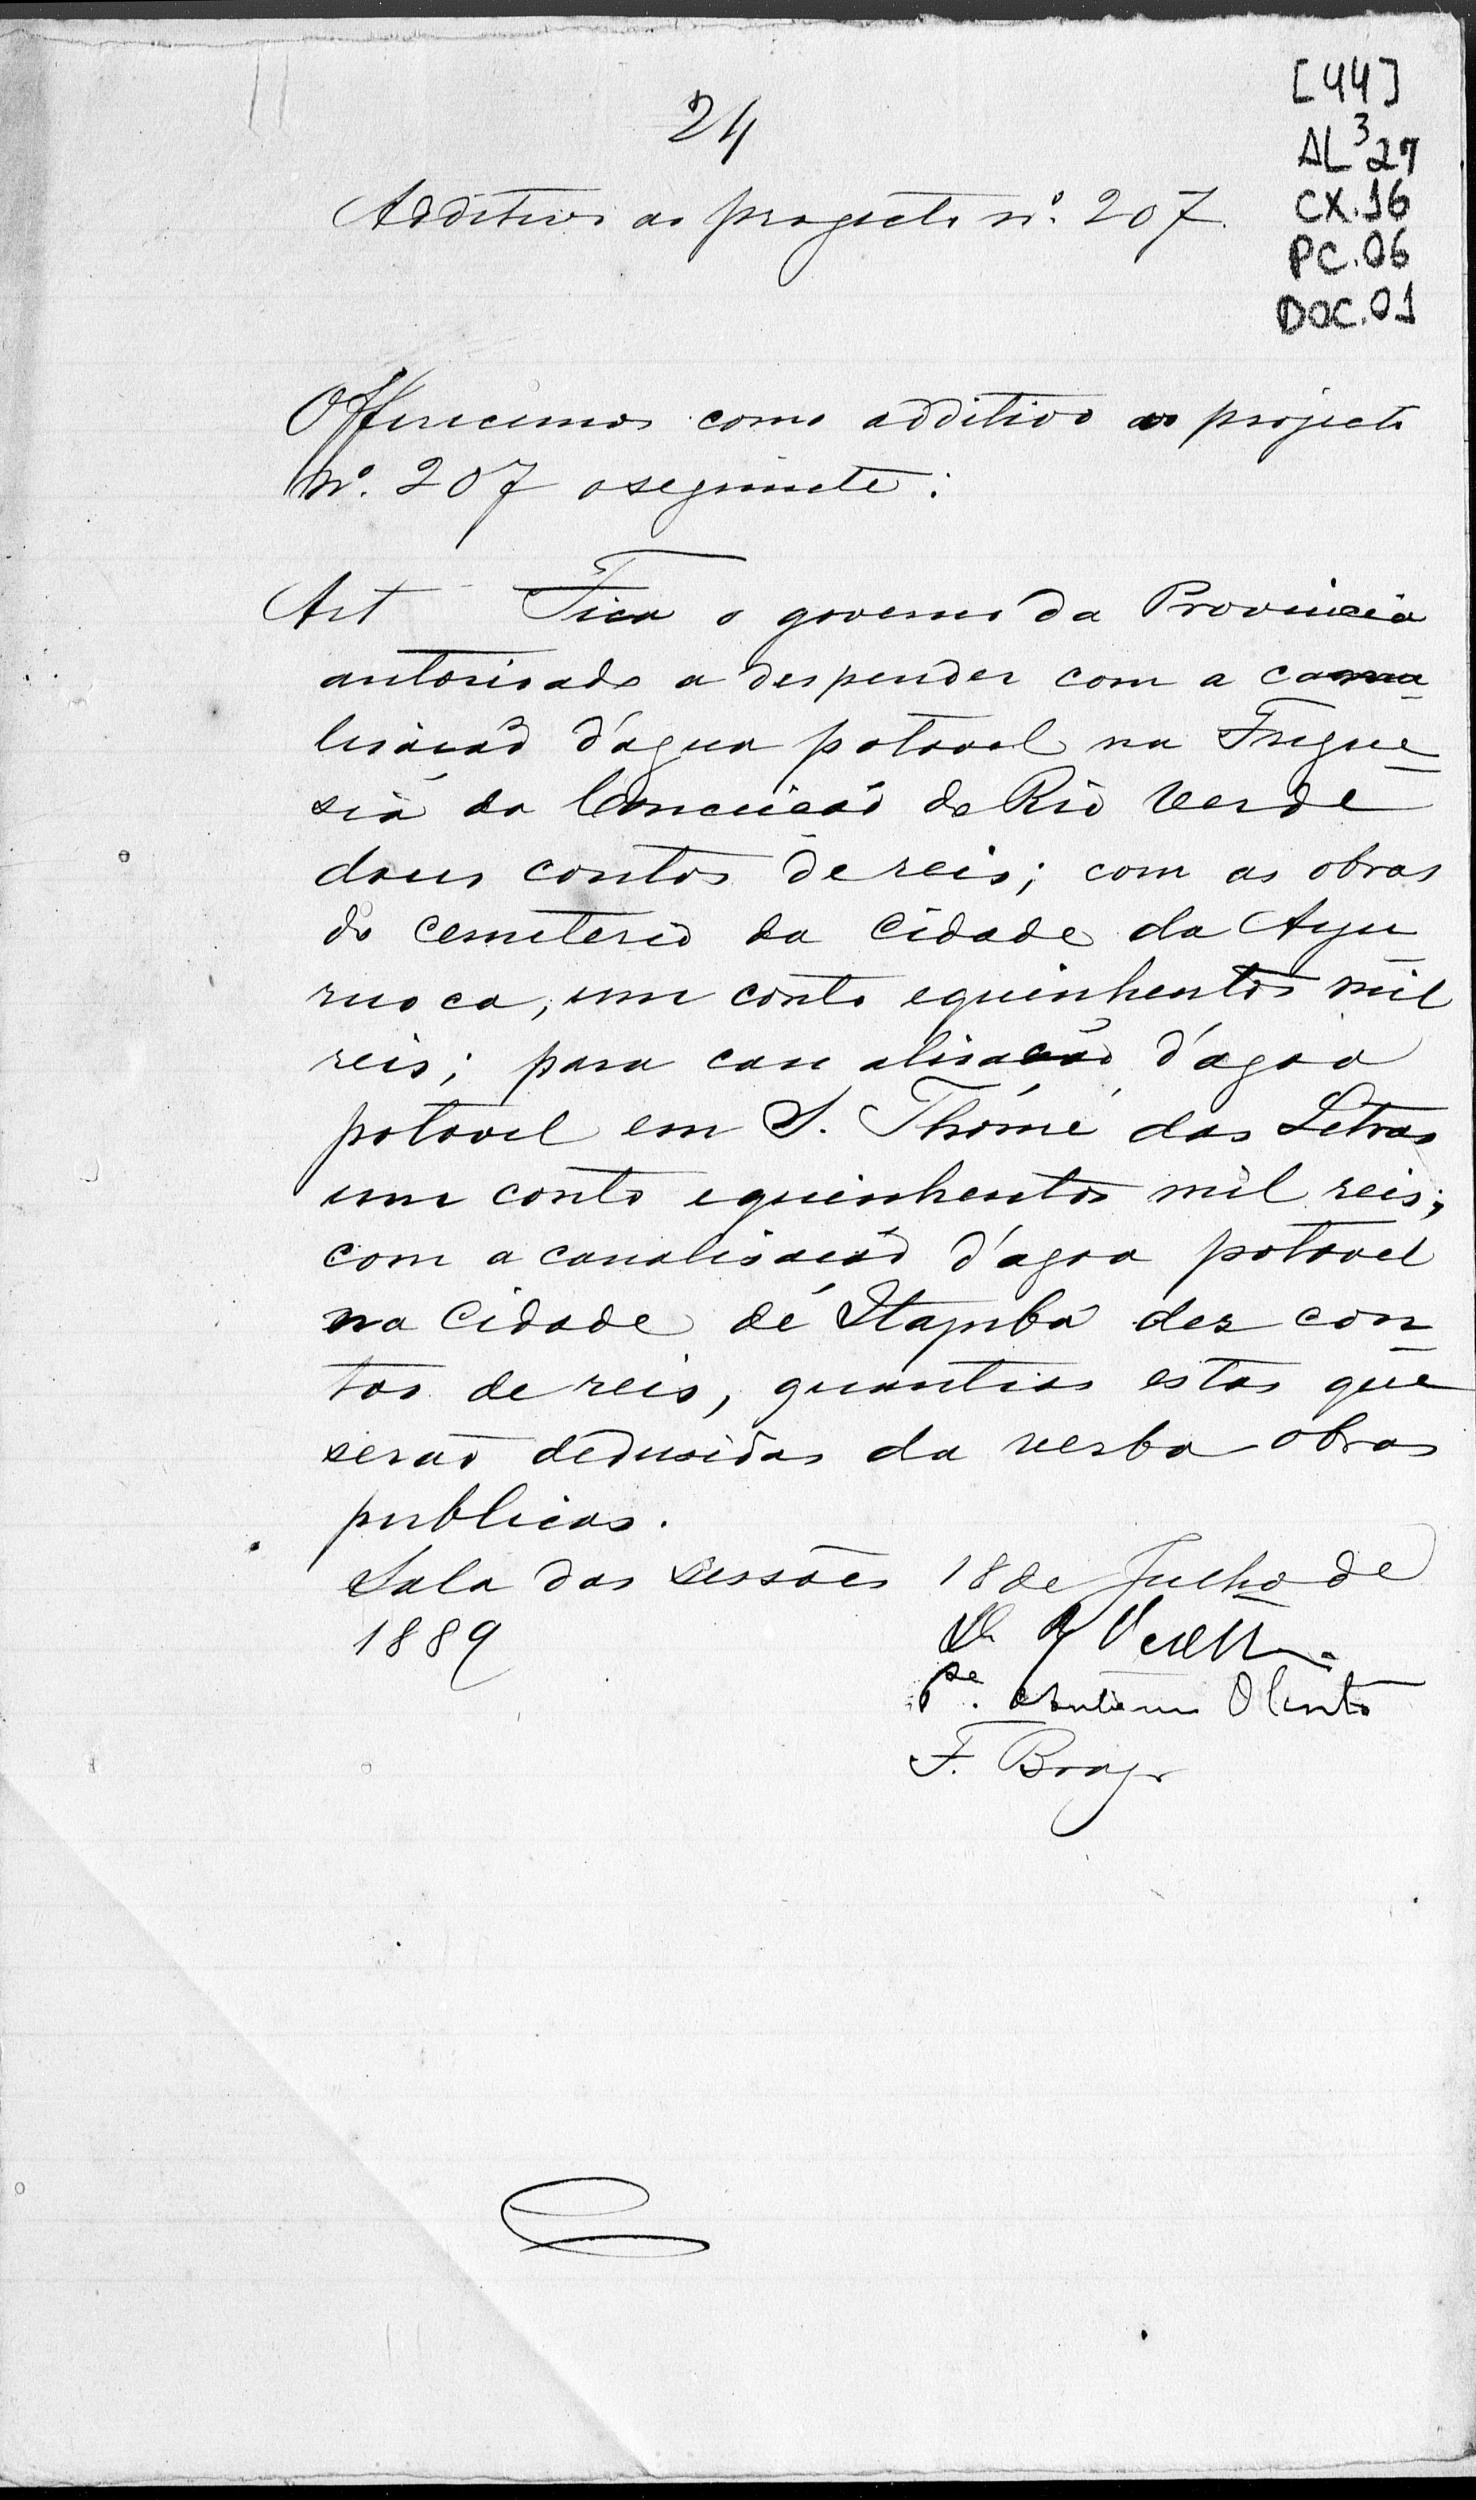 [44]
AL³27
CX.16
PC.06
DOC.01
24
Additivo ao progecto nº. 207.
Offerecemos como additivo ao projecto
Nº. 207 o seguinte:
Art Fica o governo da Provincia
autorisado a despender com a cana-
lisação d'agua potavel na Fregue-
sia da Conceição do Rio Verde
dous contos de reis; com as obras
do cemiterio da Cidade da Ayu-
ruoca, um conto equinhentos mil
reis; para canalisação d'agoa
potavel em S. Thomé das Letras
um conto equinhentos mil reis;
com a canalisação d'agoa potavel
na Cidade de Itapuba dez con-
tos de reis, quantias estas que
serão dedusidas da verba obras
publicas.
Sala das sessões 18 de Julho de
1889
Pe. Antonio Olinto
F. Braga